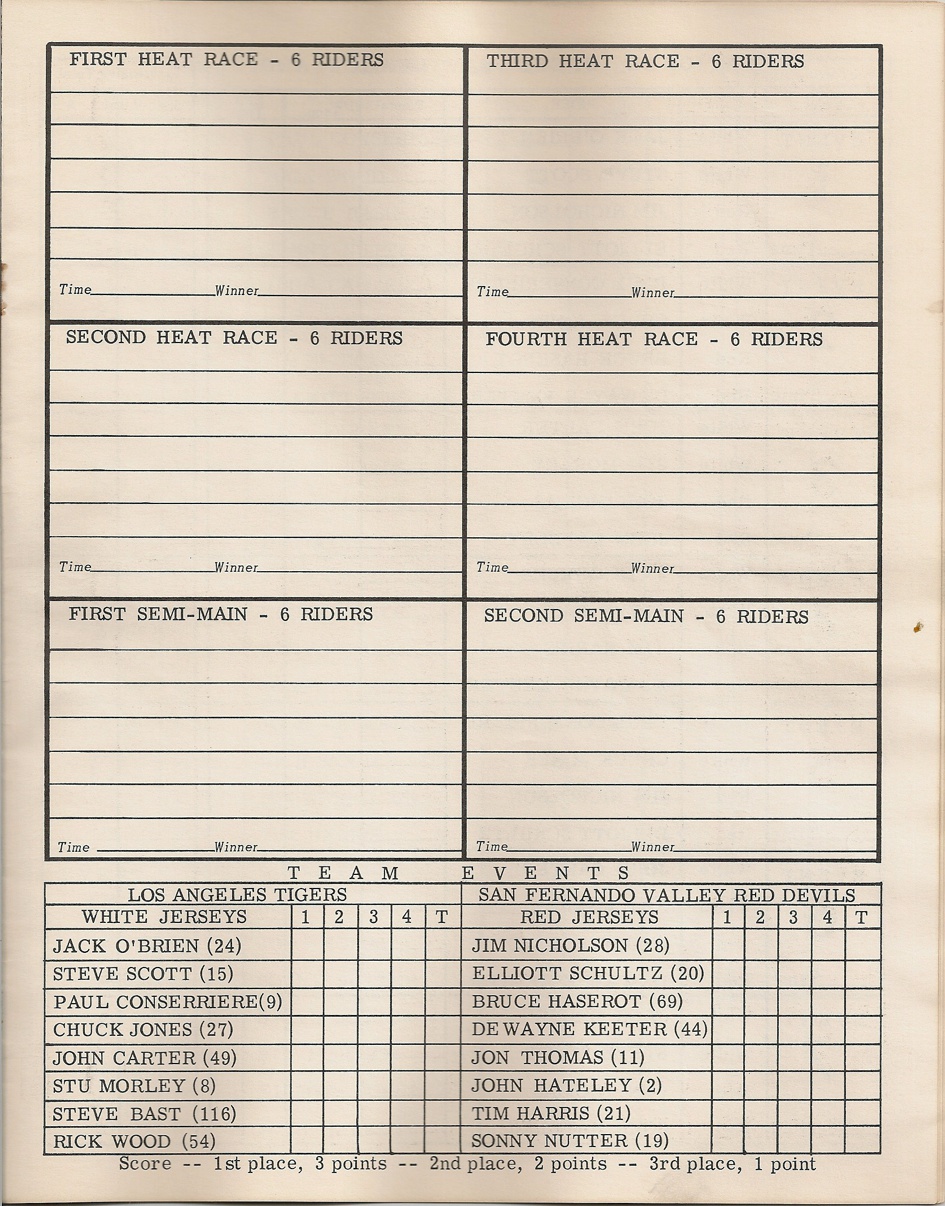 FIRST HEAT RACE - 6 RIDERS
Time Winner
THIRD HEAT RACE - 6 RIDERS
Time Winner
SECOND HEAT RACE - 6 RIDERS
Time Winner
FOURTH HEAT RACE - 6 RIDERS
Time Winner
FIRST SEMI-MAIN - 6 RIDERS
Time Winner
SECOND SEMI-MAIN - 6 RIDERS
Time Winner
TEAM EVENTS
LOS ANGELES TIGERS
WHITE JERSEYS 1 2 3 4 T
JACK O'BRIEN (24)
STEVE SCOTT (15)
PAUL CONSERRIERE(9)
CHUCK JONES (27)
JOHN CARTER (49)
STU MORLEY (8)
STEVE BAST (116)
RICK WOOD (54)
SAN FERNANDO VALLEY RED DEVILS
RED JERSEYS 1 2 3 4 T
JIM NICHOLSON (28)
ELLIOTT SCHULTZ (20)
BRUCE HASEROT (69)
DE WAYNE KEETER (44)
JON THOMAS (11)
JOHN HATELEY (2)
TIM HARRIS (21)
SONNY NUTTER (19)
Score -- 1st place, 3 points -- 2nd place, 2 points -- 3rd place, 1 point